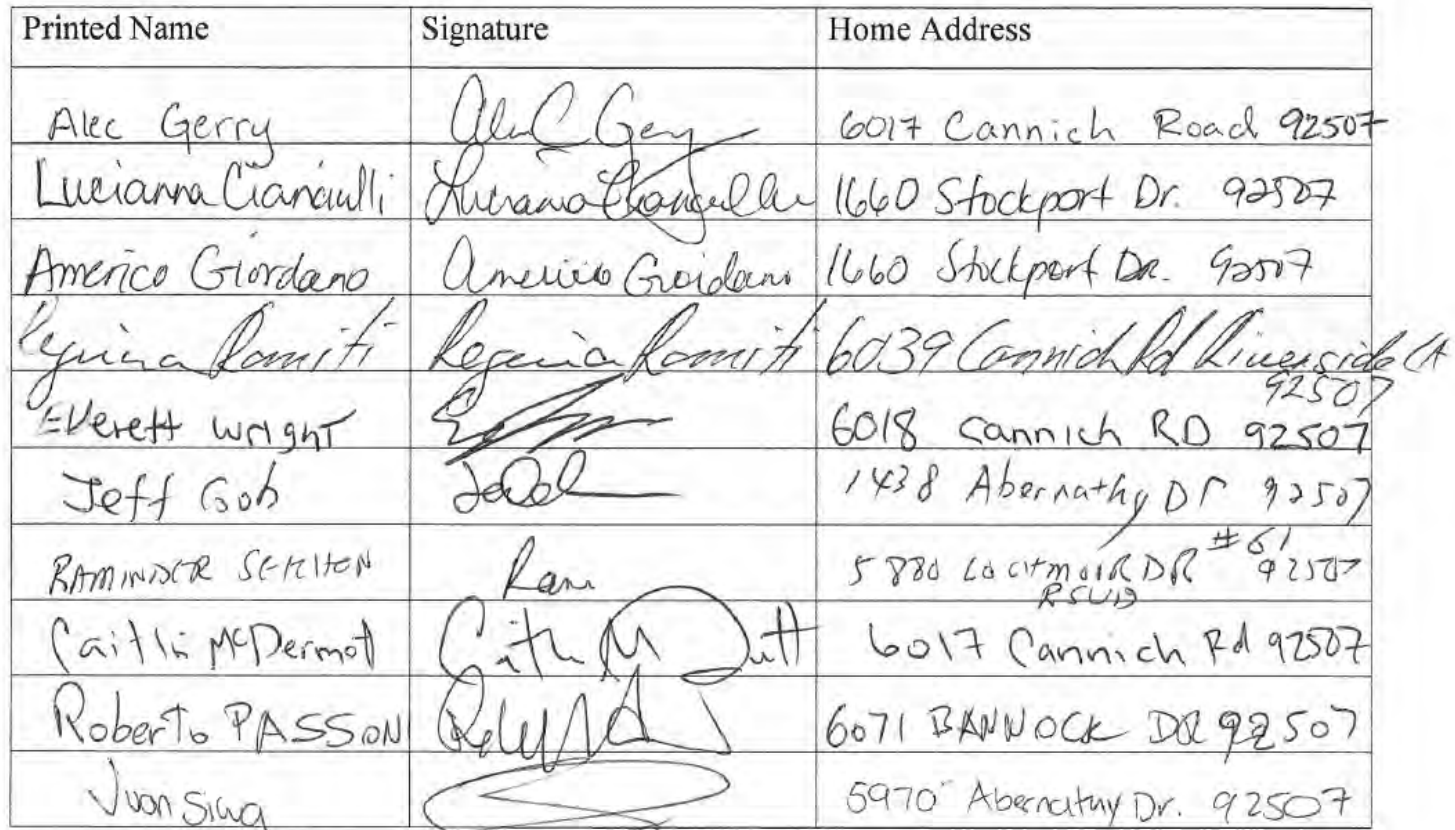 Printed Name Signature Home Address
Alec Gerry Alec C Gerry 6017 Cannich Road 92507
Lucianna Cianciulli Lucianna Cianciulli 1660 Stockport Dr. 92507
Americo Giordano Americo Giordano 1660 Stockport DR. 92507
Regina Ramiti Regina Ramiti 6039 Cannich Rd Riverside CA
92507
Everett Wright 6018 Cannich RD 92507
Jeff Goh 1438 Abernathy Dr 92507
RAMINDER SEKHON Ram 5880 LOCHMOOR DR #61 92507
Caitlin McDermot 6017 Cannich Rd 92507
Roberto PASSON 6071 BANNOCK DR 92507
Juan Silva 5970 Abernathy Dr. 92507